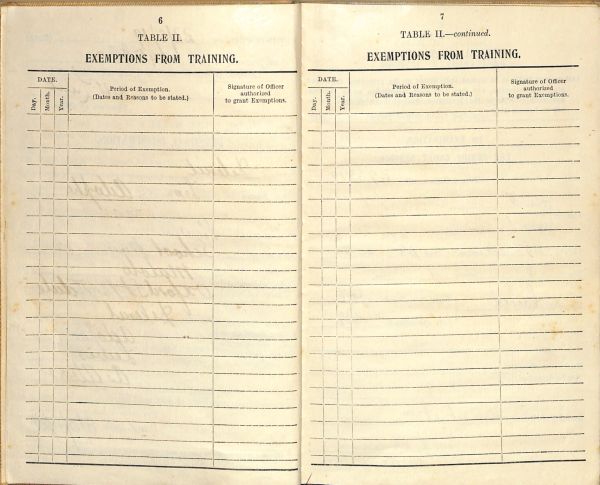 6
TABLE II.
EXEMPTIONS FROM TRAINING.
DATE.
Day.
Month.
Year.
Period of Exemption.
(Dates and Reasons to be stated.)
Signature of Officer
authorized
to grant Exemptions.
7
TABLE II.—continued.
EXEMPTIONS FROM TRAINING.
DATE.
Day.
Month.
Year.
Period of Exemption.
(Dates and Reasons to be stated.)
Signature of Officer
authorized
to grant Exemptions.